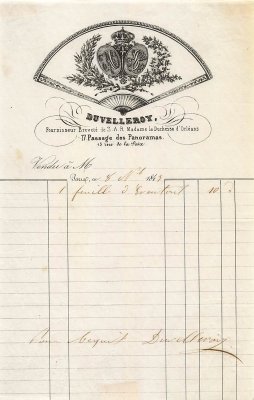 DUVELLEROY,
Fournisseur Breveté de S.A.R. Madame la Duchesse d'Orléans
17 Passage des Panoramas.
15 rue de la Paix
Vendu à M
Paris, le 8 1843
1 feuille d'Eventail 10
Pour Acquit Duvelleroy